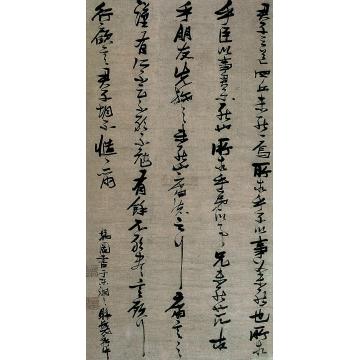 君子之道四丘未能一焉所求乎子以事父未能也所求
乎臣以事君未能也所求乎弟以事兄未能也所求
乎朋友先施之未能也庸德之行庸言之
謹有所不足不敢不勉有餘不敢盡言顧行
行顧言君子胡不慥慥爾